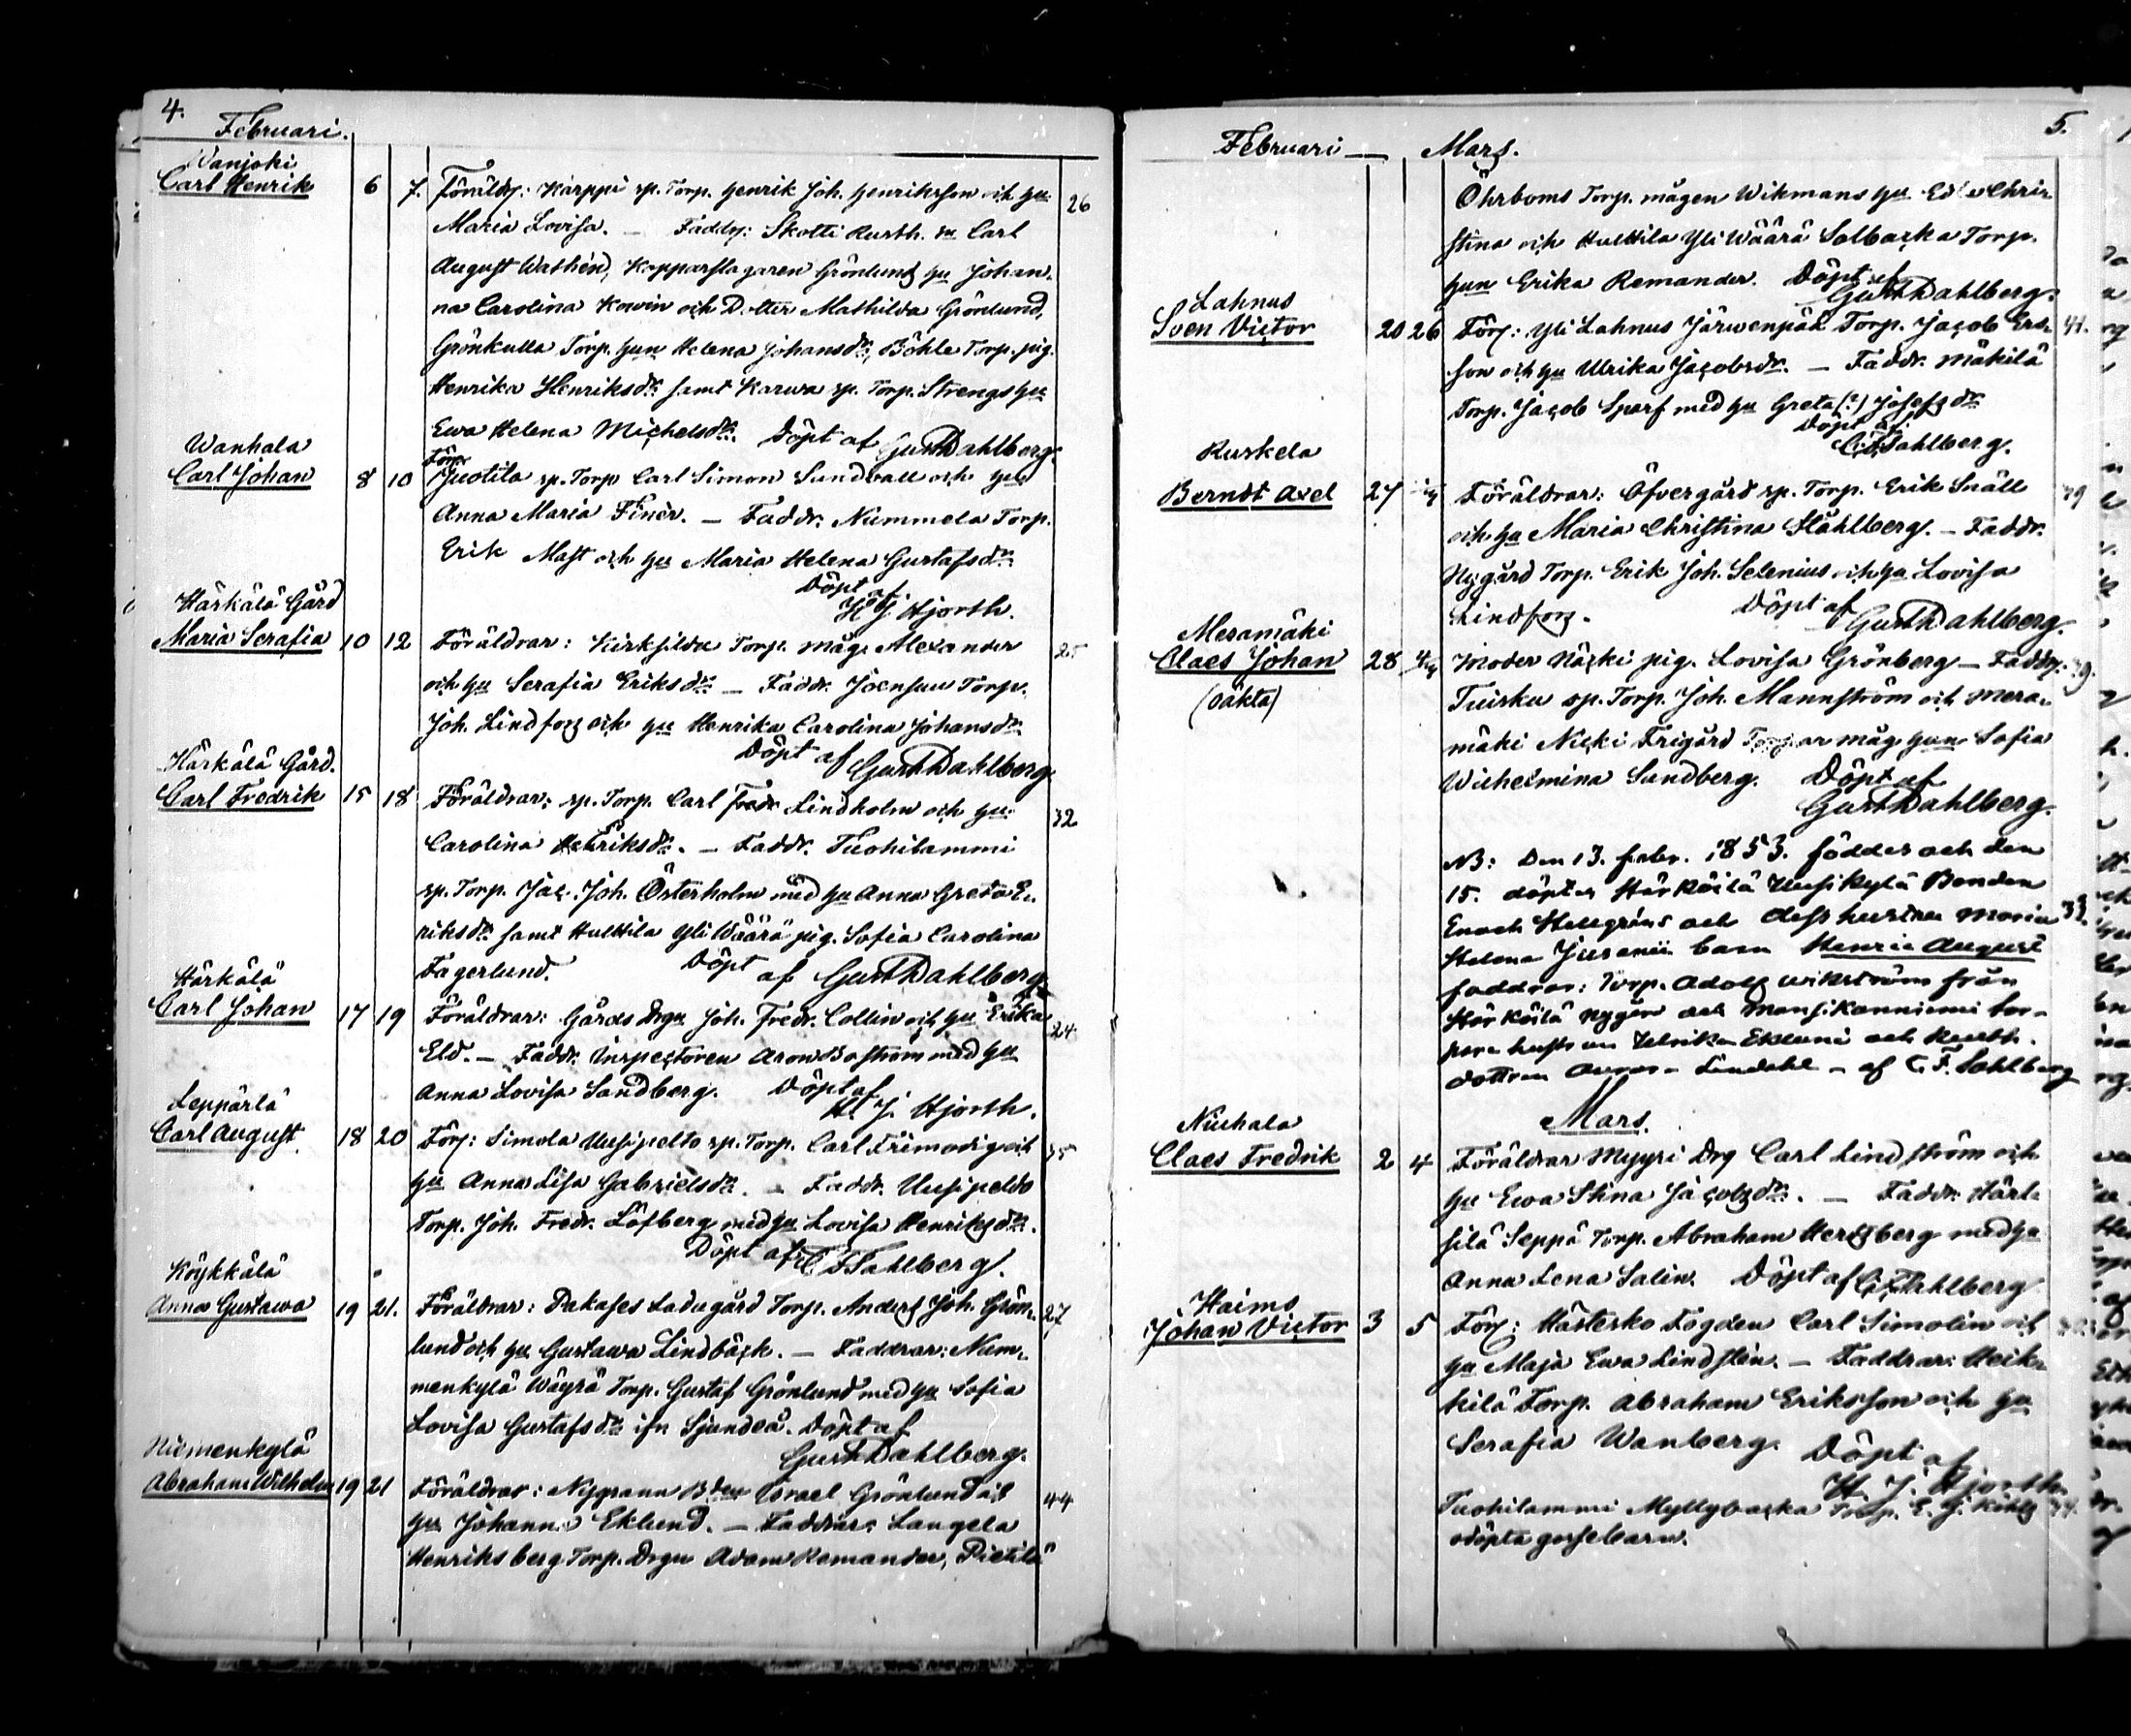 4.
Februari.
Wanjoki
Carl Henrik 6 7. Föräldr: Karppi sp. Torp. Henrik Joh. Henriksson och hu 26
Maria Lovisa. — Faddr: Skotti Rusth. sn Carl
August Wathén, Kopparslagaren Grönlunds hu Johan-
na Carolina Kowin och Dotter Mathilda Grönlund,
Grönkulla Torp. hun Helena Johansdr, Böhle Torp. pig.
Henrika Henriksdr samt Karwa sp. Torp. Strengs hu
Ewa Helena Michelsdr. Döpt af Gust Dahlberg.
Wanhala
Carl Johan 8 10 Förr Juotila sp. Torp Carl Simon Sundvall och hu
Anna Maria Finér. — Faddr. Nummela Torp.
Erik Mast och hu Maria Helena Gustafsdr
Döpt af
H J Hjorth.
Härkälä Gård
Maria Serafia 10 12 Föräldrar: Kirksilda Torp. måg. Alexander 25
och hu Serafia Eriksdr — Faddr. Joensuu Torp.
Joh. Lindfors och hu Henrika Carolina Johansdr
Döpt af Gust Dahlberg
Härkälä Gård.
Carl Fredrik 15 18 Föräldrar: sp. Torp. Carl Fredr Lindholm och hu 32
Carolina Henriksdr. — Faddr. Tuohilammi
sp. Torp. Jac. Joh. Österholm med hu Anna Greta E-
riksdr samt Hulttila Yli Wäärä pig. Sofia Carolina
Fagerlund. Döpt af Gust Dahlberg
Härkälä
Carl Johan 17 19 Föräldrar: Gårds Drgn Joh. Fredr. Collin och hu Erika 24
Eld. — Faddr. Inspectoren Aron Boström med hu
Anna Lovisa Sandberg. Döpt af
H. J. Hjorth.
Leppärlä
Carl August 18 20 Förr: Simola Uusipelto sp. Torp. Carl Frimodig och 35
hu Anna Lisa Gabrielsdr. — Faddr. Uusipelto
Torp. Joh. Fredr. Löfberg med hu Lovisa Henriksdr.
Döpt af C F Sahlberg.
Köykkälä
Anna Gustawa 19 21. Föräldrar: Pakases Ladugård Torp. Anders Joh. Grön- 27
lund och hu Gustawa Lindbäck. — Faddrar: Num-
menkylä Wäyrä Torp. Gustaf Grönlund med hu Sofia
Lovisa Gustafsdr ifr Sjundeå. Döpt af
Gust Dahlberg.
Niemenkylä
Abraham Wilhelm 19 21 Föräldrar: Nygrann Bden Israel Grönlund och 44
hu Johanna Eklund. — Faddrar: Laugela
Henriksberg Torp. Drgn Adam Remander, Pietilä
5.
Februari — Mars.
Öhrboms Torp. mågen Wikmans hu Ed Chri-
stina och Hulttila Yli Wäärä Solbacka Torp.
hun Erika Remander. Döpt af
Gust Dahlberg.
Lahnus
Sven Victor 20 26 Förr: Yli Lahnus Järwenpää Torp. Jacob Ers- 41.
son och hu Ulrika Jacobsdr. — Faddr. Mäkilä
Torp. Jacob Sparf med hu Greta (?) Josefsdr
Döpt af
C. F. Sahlberg.
Ruskela
Berndt Axel 27 Föräldrar: Öfvergård sp. Torp. Erik Snäll 39
och hu Maria Christina Ståhlberg. — Faddr.
Nygård Torp. Erik Joh. Selenius och hu Lovisa
Lindfors. Döpt af
Gust Dahlberg.
Meramäki
Claes Johan 28 4/3 Moder Näcki pig. Lovisa Grönberg — Faddr. 39.
(oäkta) Tuirku sp. Torp. Joh. Mannström och Mera-
mäki Nicki Frigård Torpar måg hun Sofia
Wilhelmina Sundberg. Döpt af
Gust Dahlberg.
NB: Den 13. febr. 1853. föddes och den
15. döptes Härkälä Uusikylä Bonden
Enoch Hellgréns och dess hustru Maria 33.
Helena Juseenii barn Henric August
faddrar: Torp. Adolf Wikström från
Härkälä Nygård och Mansikanniemi tor-
pare hustrun Ulrika Eklund och Rusth.
dottren Lindahl — af C. F. Sahlberg
Mars.
Niuhala
Claes Fredrik 2 4 Föräldrar Myyri Drg Carl Lindström och
hu Ewa Stina Jacobsdr. — Faddr. Härk-
silä Seppä Torp. Abraham Hertzberg med hu
Anna Lena Salin. Döpt af C. F. Sahlberg
Haimo
Johan Victor 3 5 Förr: Hästesko Fogden Carl Simolin och
hu Maja Ewa Lindsten. — Faddrar: Heik-
kilä Torp. Abraham Eriksson och hu
Serafia Wanberg. Döpt af
H. J. Hjorth.
Tuohilammi Myllybacka Torp. E. J.
odöpta gossebarn.